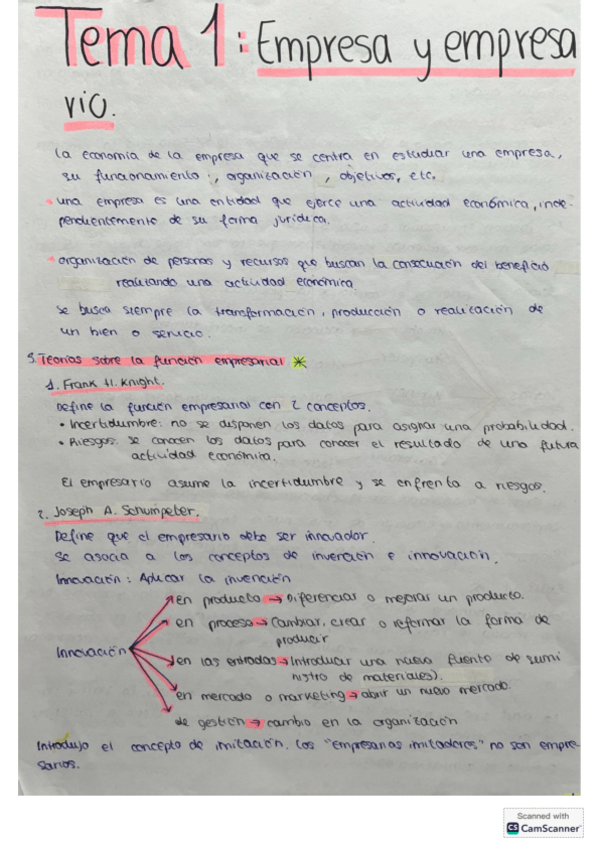 Tema 1: Empresa y empresa
rio.
La economía de la empresa que se centra en estudiar una empresa,
su funcionamiento, organización, objetivos, etc.
una empresa es una entidad que ejerce una actividad económica, inde-
pendientemente de su forma jurídica.
organización de personas y recursos que buscan la consecución del beneficio
realizando una actividad económica
Se busca siempre la transformación, producción o realización de
un bien o servicio.
3. Teorías sobre la función empresarial *
1. Frank H. Knight.
Define la función empresarial con 2 conceptos.
• Incertidumbre: no se disponen los datos para asignar una probabilidad.
• Riesgos: se conocen los datos para conocer el resultado de una futura
actividad económica.
El empresario asume la incertidumbre y se enfrenta a riesgos.
2. Joseph A. Schumpeter.
Define que el empresario debe ser innovador.
Se asocia a los conceptos de invención e innovación.
Innovación: Aplicar la invención
Innovación
en producto → Diferenciar o mejorar un producto.
en proceso → Cambiar, crear o reformar la forma de
producir
en las entradas → Introducir una nueva fuente de sumi
nistro de materiales).
en mercado o marketing → abrir un nuevo mercado.
de gestión → cambio en la organización
Introdujo el concepto de imitación. Los "empresarios imitadores" no son empre-
sarios.
Scanned with
CS CamScanner